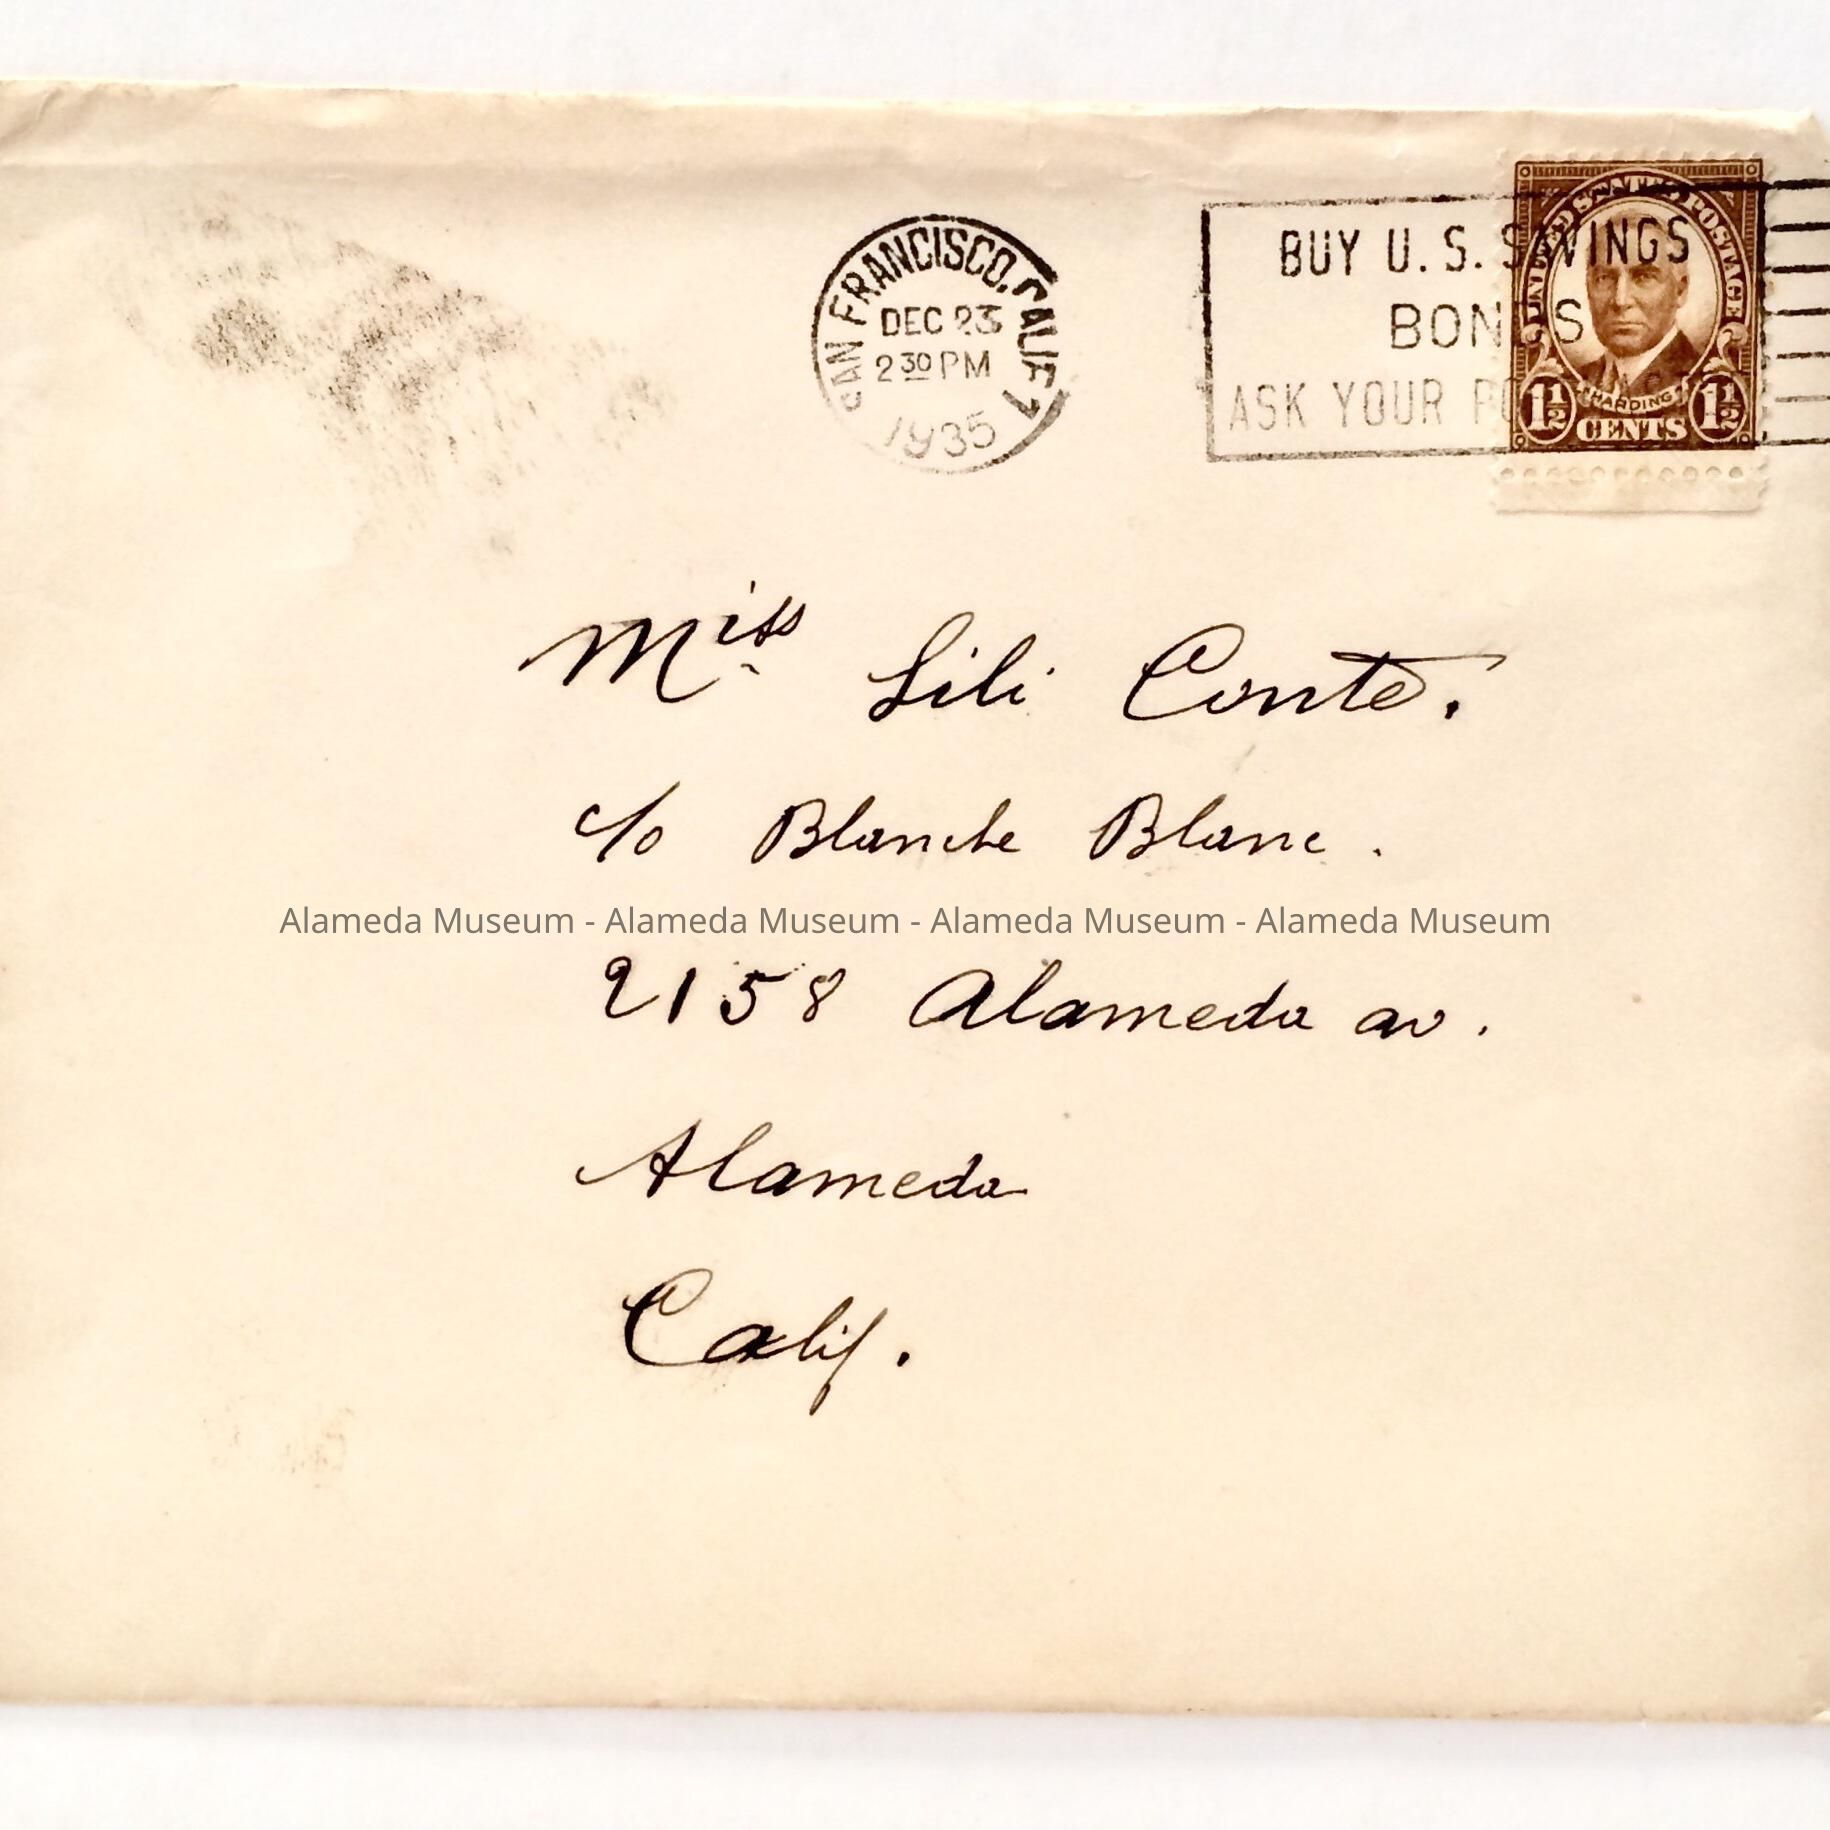 SAN FRANCISCO, CALIF 1
DEC 23
2 30 PM
1935
BUY U. S. SAVINGS
BONDS
ASK YOUR
UNITED STATES POSTAGE
HARDING
1½ 1½
CENTS
Miss Lili Conte.
c/o Blanche Blanc.
Alameda Museum - Alameda Museum - Alameda Museum - Alameda Museum
2158 Alameda av.
Alameda
Calif.